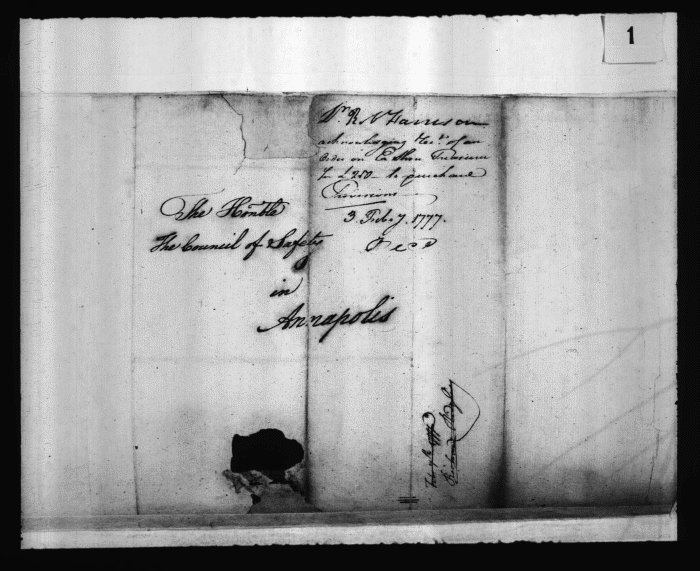 1
Dr. R. N. Harrison
acknowledging Rect. of an
Order on Ea Shore Treasurer
for £250 to purchase
Provisions
3. Feby. 1777.
The Honble
The Council of Safety
in
Annapolis
Richard